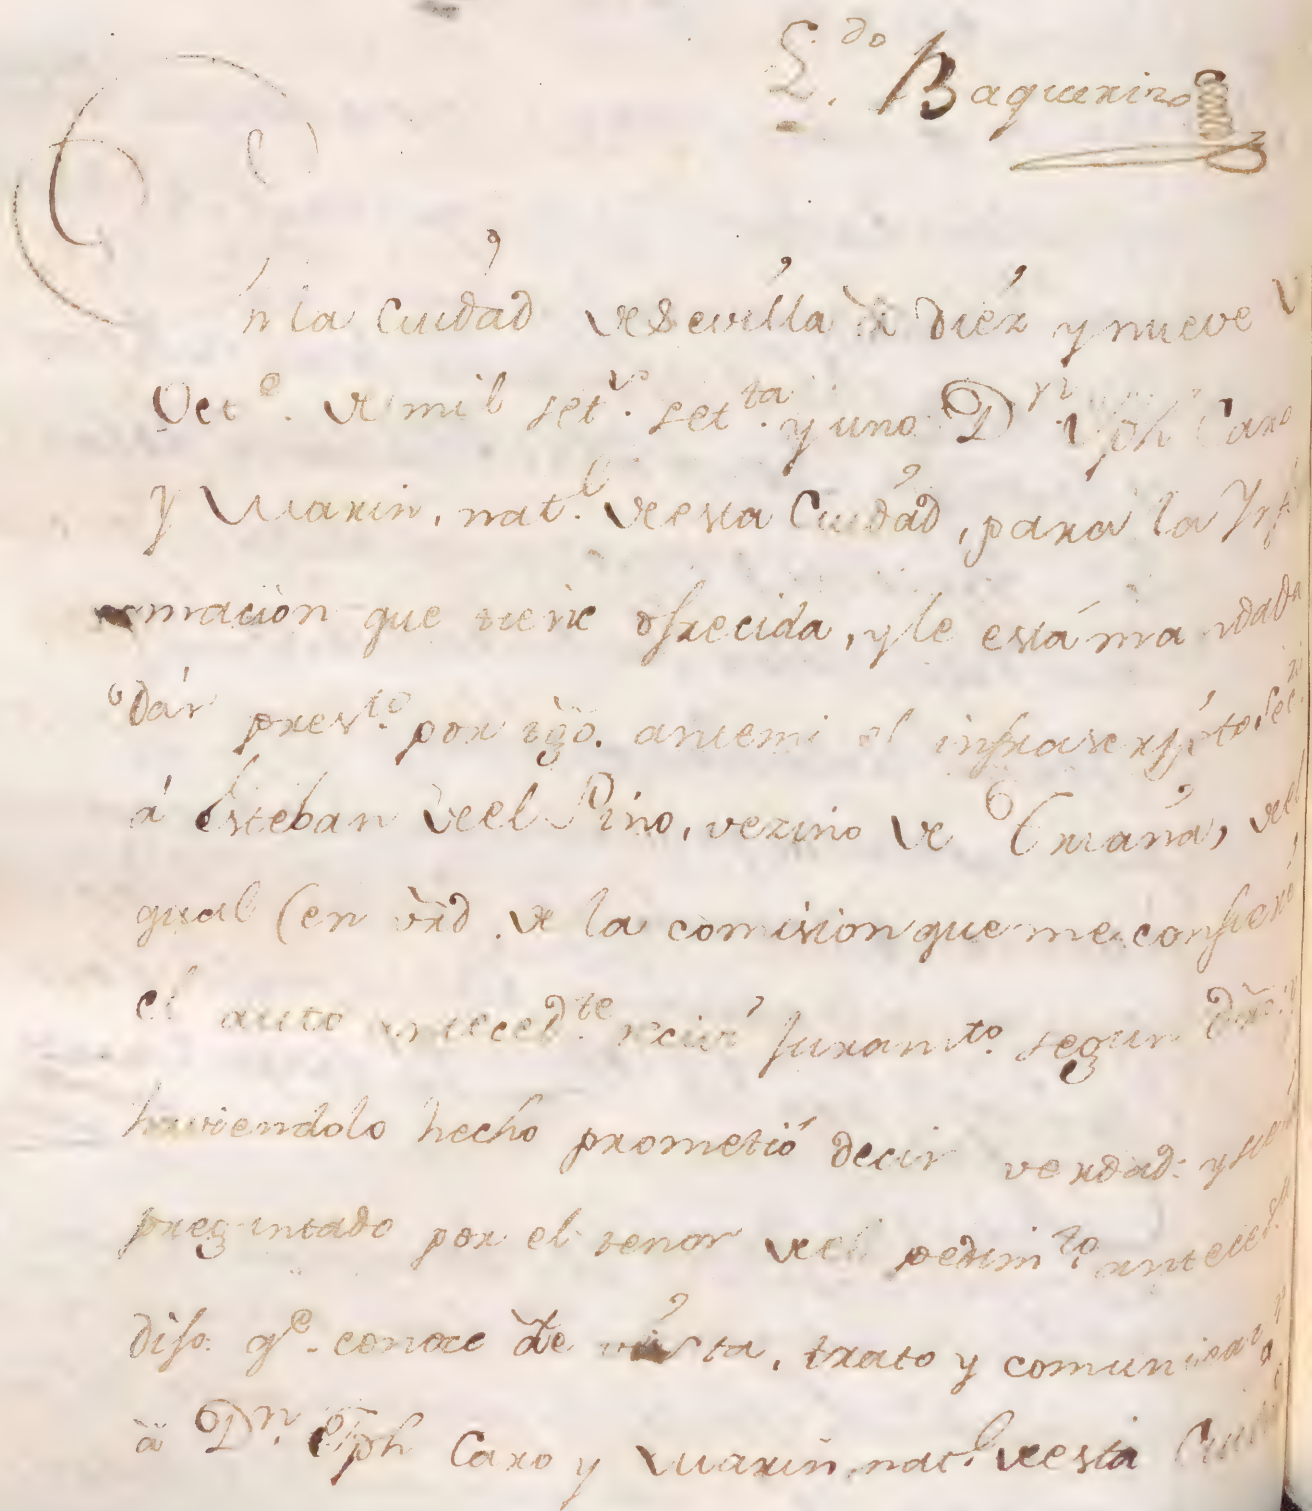 L.do Baquerizo
En la Ciudad de Sevilla à diéz y nueve de
Oct.e de mil set.s set.ta y uno D.n Jph Caro
y Marin, nat.l de esta Ciudad, para la Inf
ormacion que tiene ofrecida, y le está mandada
dár pres.to por tgo. ante mi el infrascripto Sec.
á Esteban de el Pino, vezino de Triana, de el
qual (en vrd de la comision que me confiere
el auto anteced.te recivi juram.to segun dro. y
haviendolo hecho prometió decir verdad: y siendo
preguntado por el tenor de el pedim.to anteced.te
dijo q.e conoce de vista, trato y comunicaz.n
à D.n Jph Caro y Marin nat.l de esta Ciudad